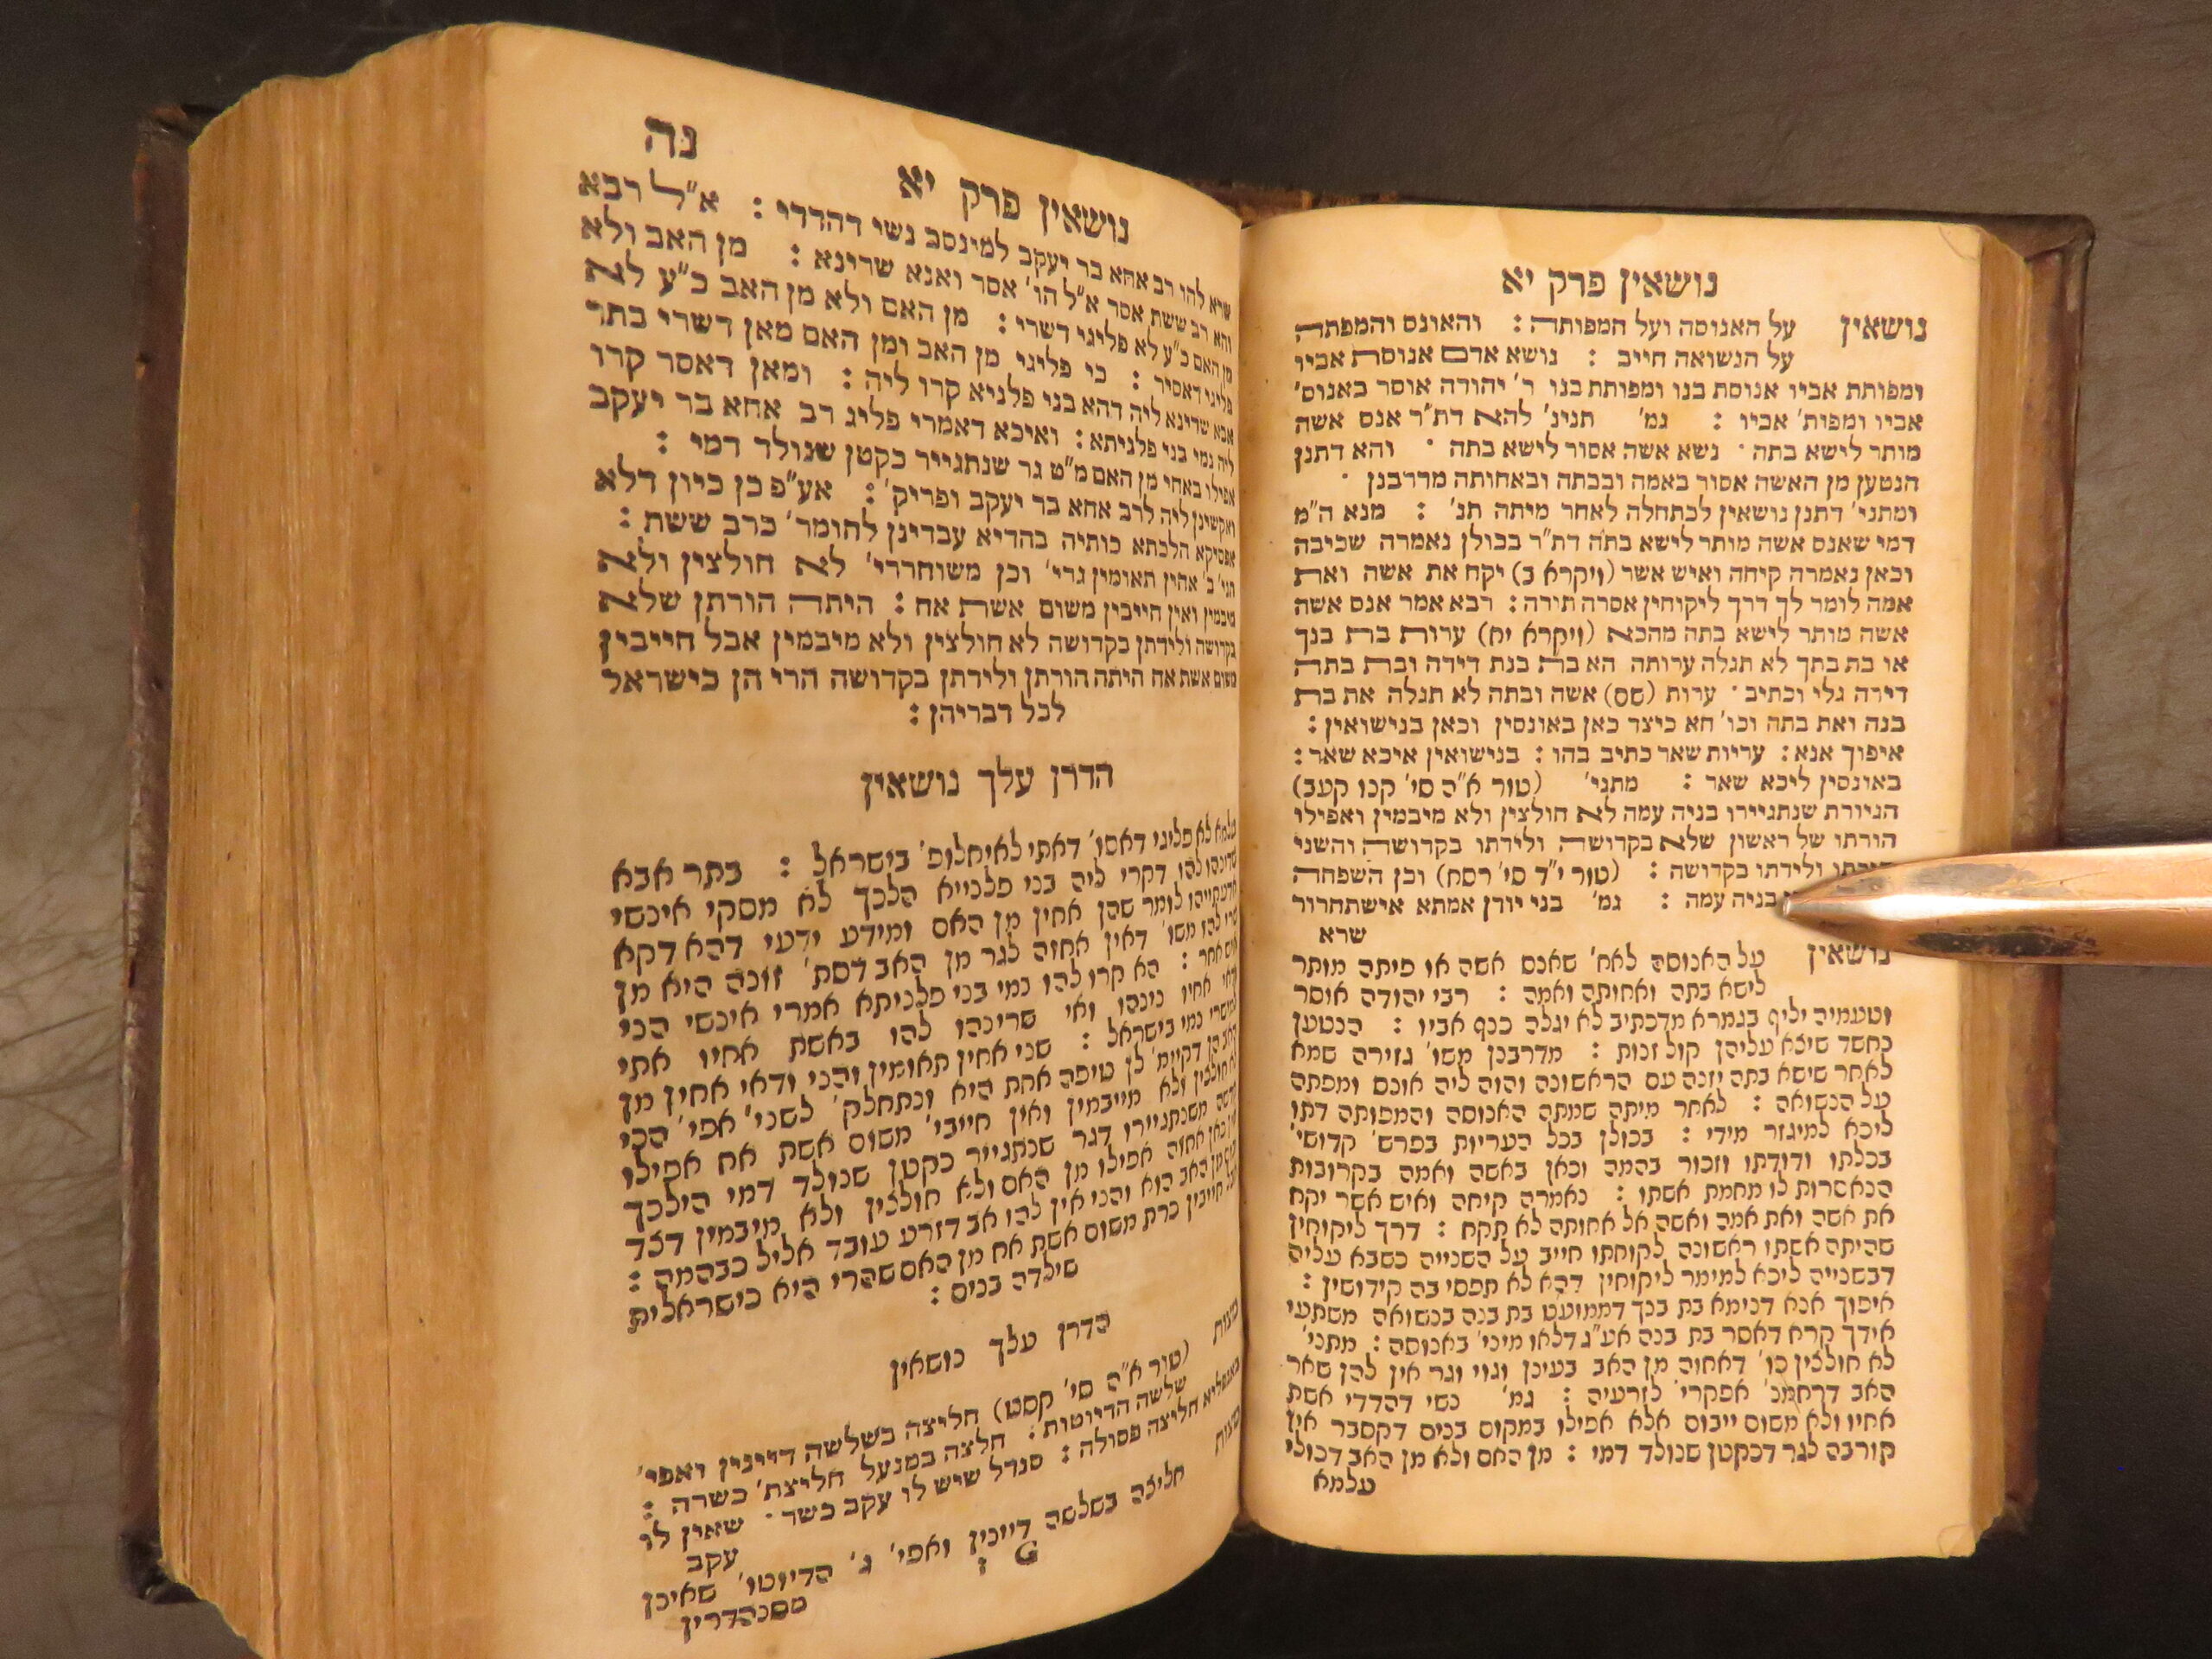 נושאין פרק יא
נושאין על האנוסה ועל המפותה : והאונס והמפתה
על הנשואה חייב : נושא אדם אנוסת אביו
ומפותת אביו אנוסת בנו ומפותת בנו ר' יהודה אוסר באנוס'
אביו ומפות' אביו : גמ' תנינ' להא דת"ר אנס אשה
מותר לישא בתה · נשא אשה אסור לישא בתה · והא דתנן
הנטען מן האשה אסור באמה ובבתה ובאחותה מדרבנן ·
ומתני' דתנן נושאין לכתחלה לאחר מיתה תנ' : מנא ה"מ
דמי שאנס אשה מותר לישא בתה דת"ר בכולן נאמרה שכיבה
וכאן נאמרה קיחה ואיש אשר (ויקרא כ) יקח את אשה ואת
אמה לומר לך דרך ליקוחין אסרה תורה : רבא אמר אנס אשה
אשה מותר לישא בתה מהכא (ויקרא יח) ערות בת בנך
או בת בתך לא תגלה ערותה הא בת בנת דידה ובת בתה
דידה גלי וכתיב · ערות (שם) אשה ובתה לא תגלה את בת
בנה ואת בתה וכו' הא כיצד כאן באונסין וכאן בנישואין :
איפוך אנא : עריות שאר כתיב בהו : בנישואין איכא שאר :
באונסין ליכא שאר : מתני' (טור א"ה סי' קנו קעב)
הגיורת שנתגיירו בניה עמה לא חולצין ולא מיבמין ואפילו
הורתו של ראשון שלא בקדושה ולידתו בקדושה והשני
ולידתו בקדושה : (טור י"ד סי' רסח) וכן השפחה
בניה עמה : גמ' בני יודן אמתא אישתחרור
שרא
נושאין על האנוסה לאח' שאנס אשה או פיתה מותר
לישא בתה ואחותה ואמה : רבי יהודה אוסר
וטעמיה יליף בגמרא מדכתיב לא יגלה כנף אביו : הנטען
נחשד שיצא עליהן קול זנות : מדרבנן משו' גזירה שמא
לאחר שישא בתה יזנה עם הראשונה והוה ליה אונס ומפתה
על הנשואה : לאחר מיתה שמתה האנוסה והמפותה דתו
ליכא למיגזר מידי : בכולן בכל העריות בפרש' קדושי'
בכלתו ודודתו וזכור בהמה וכאן באשה ואמה בקרובות
הנאסרות לו מחמת אשתו : נאמרה קיחה ואיש אשר יקח
את אשה ואת אמה ואשה אל אחותה לא תקח : דרך ליקוחין
שהיתה אשתו ראשונה לקוחתו חייב על השנייה כשבא עליה
דבשנייה ליכא למימר ליקוחין דהא לא תפסי בה קידושין :
איפוך אנא דנימא בת בנך דממועט בת בנה בנשואה משתעי
אידך קרא דאסר בת בנה אע"ג דלאו מיני' באנוסה : מתני'
לא חולצין כו' דאחוה מן האב בעינן וגוי וגר אין להן שאר
האב דרחמנ' אפקרי' לזרעיה : גמ' נשי דהדדי אשת
אחיו ולא משום ייבום אלא אפילו במקום בנים דקסבר אין
קורבה לגר דכקטן שנולד דמי : מן האם ולא מן האב דכולי
עלמא
נושאין פרק יא נה
שרא להו רב אחא בר יעקב למינסב נשי דהדדי : א"ל רבא
והא רב ששת אסר א"ל הו' אסר ואנא שרינא : מן האב ולא
מן האם כ"ע לא פליגי דשרי : מן האם ולא מן האב כ"ע לא
פליגי דאסיר : כי פליגי מן האב ומן האם מאן דשרי בתר
אבא שדינא ליה דהא בני פלניא קרו ליה : ומאן דאסר קרו
ליה נמי בני פלניתא : ואיכא דאמרי פליג רב אחא בר יעקב
אפילו באחי מן האם מ"ט גר שנתגייר כקטן שנולד דמי :
ואקשינן ליה לרב אחא בר יעקב ופריק' : אע"פ כן כיון דלא
אפסיקא הלכתא כותיה בהדיא עבדינן לחומר' כרב ששת :
תני' ב' אחין תאומין גרי' וכן משוחררי' לא חולצין ולא
מיבמין ואין חייבין משום אשת אח : היתה הורתן שלא
בקדושה ולידתן בקדושה לא חולצין ולא מיבמין אבל חייבין
משום אשת אח היתה הורתן ולידתן בקדושה הרי הן כישראל
לכל דבריהן :
הדרן עלך נושאין
עלמא לא פליגי דאסו' דאתי לאיחלופ' בישראל : בתר אבא
שדינהו להו דקרי ליה בני פלנייא הלכך לא מסקי אינשי
אדעתייהו לומר שהן אחין מן האם ומידע ידעי דהא דקא
שרי להו משו' דאין אחוה לגר מן האב דסת' זונה היא מן
איש אחר : הא קרו להו נמי בני פלניתא אמרי אינשי הכי
ודאי אחיו נינהו ואי שרינהו להו באשת אחיו אתי
למשרי נמי בישראל : שני אחין תאומין והכי ודאי אחין מן
האב הן דקיימ' לן טיפה אחת היא ונתחלק' לשני' אפי' הכי
לא חולצין ולא מייבמין ואין חייבי' משום אשת אח אפילו
משנתגיירו דגר שנתגייר כקטן שנולד דמי הילכך
אין כאן אחוה אפילו מן האם ולא חולצין ולא מיבמין דצד
מן האב הוא והני אין להו אב דזרע עובד אליל כבהמה :
אבל חייבין כרת משום אשת אח מן האם שהרי היא כישראלית
שילדה בנים :
הדרן עלך נושאין
מצות (טור א"ה סי' קסט) חליצה בשלשה דיינין ואפי'
שלשה הדיוטות : חלצה במנעל חליצת' כשרה :
באנפליא חליצה פסולה : סנדל שיש לו עקב כשר · שאין לו
עקב
מצות חליצה בשלשה דיינין ואפי' ג' הדיוטו' שאינן
G ז
מסנהדרין